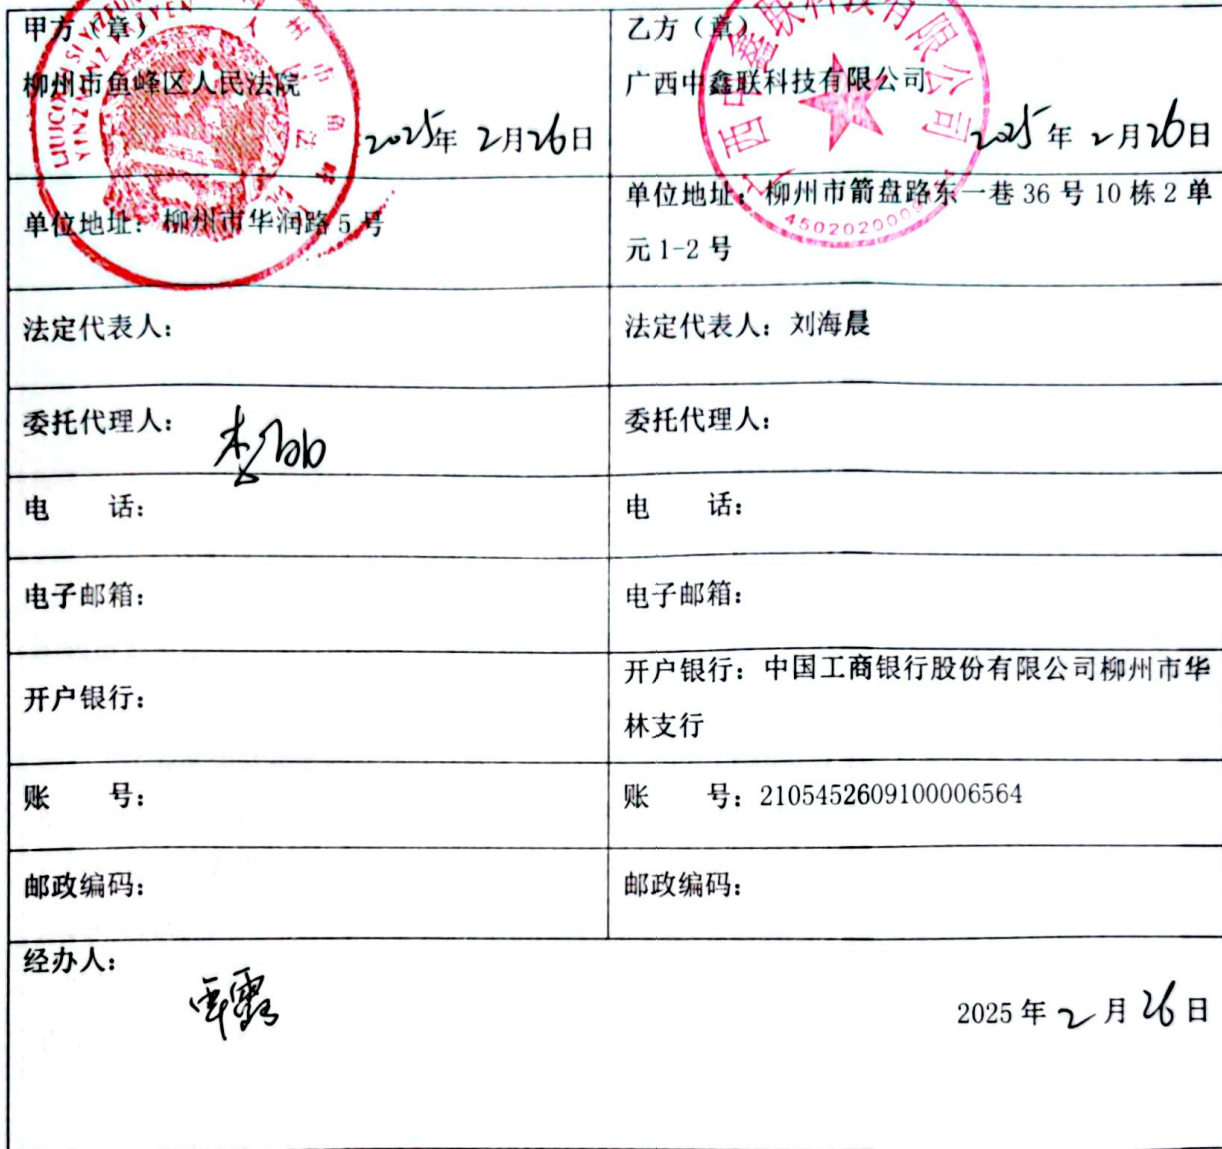 甲方（章）
柳州市鱼峰区人民法院
2025年 2月26日
乙方（章）
广西中鑫联科技有限公司
2025年 2月26日
单位地址：柳州市华润路5号
单位地址：柳州市箭盘路东一巷36号10栋2单
元1-2号
法定代表人：
法定代表人：刘海晨
委托代理人：
委托代理人：
电　　话：
电　　话：
电子邮箱：
电子邮箱：
开户银行：
开户银行：中国工商银行股份有限公司柳州市华
林支行
账　　号：
账　　号：2105452609100006564
邮政编码：
邮政编码：
经办人：
2025年2月26日